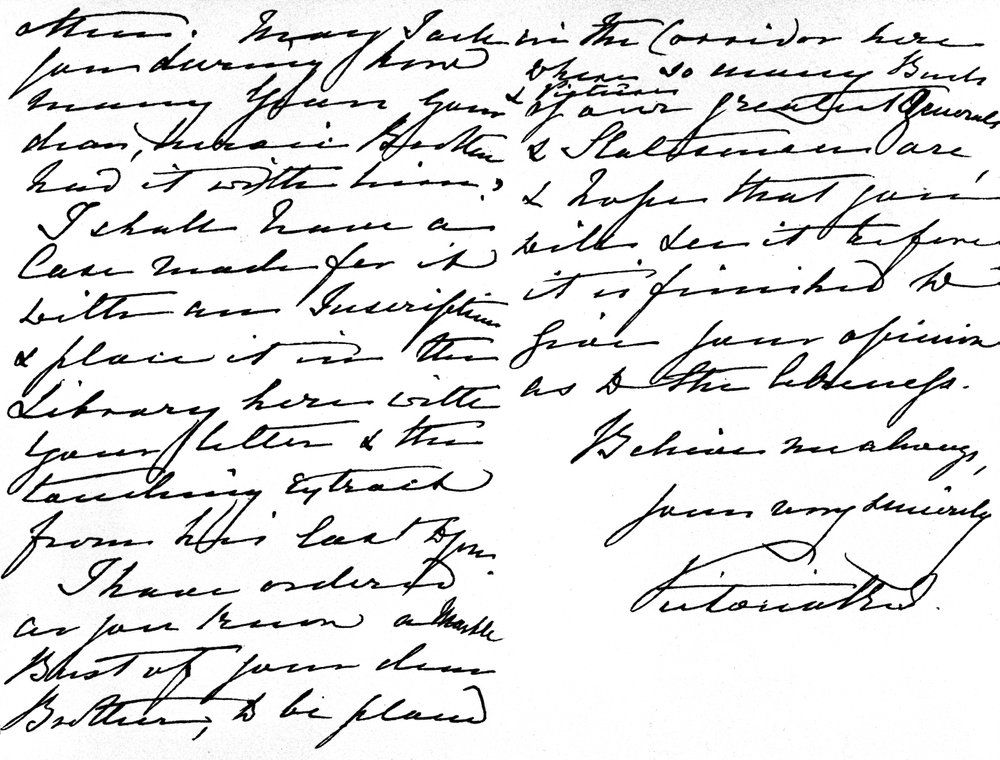 others. May I ask
you during how
many years your
dear, heroic Brother
had it with him?
I shall have a
Case made for it
with an Inscription
& place it in the
Library here with
your letter & the
touching Extract
from his last to you.
I have ordered
as you know a Marble
Bust of your dear
Brother, to be placed
in the Corridor here
where so many Busts
& Pictures
of our greatest Generals
& Statesmen are
& hope that you
will see it before
it is finished to
give your opinion
as to the likeness.
Believe me always,
yours very sincerely
Victoria R I.